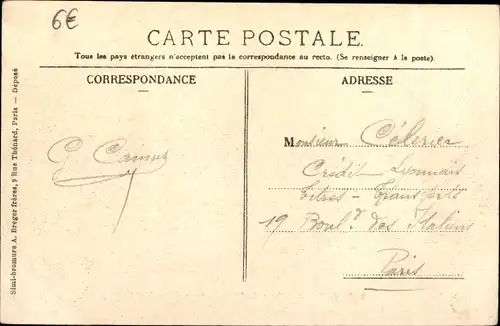 6€
CARTE POSTALE.
Tous les pays étrangers n'acceptent pas la correspondance au recto. (Se renseigner à la poste).
CORRESPONDANCE
G. Camus
ADRESSE
Monsieur Célerier
Crédit Lyonnais
Titres - Transferts
19 Boul.d des Italiens
Paris
Simi-bromure A. Breger frères, 9 Rue Thénard, Paris — Déposé